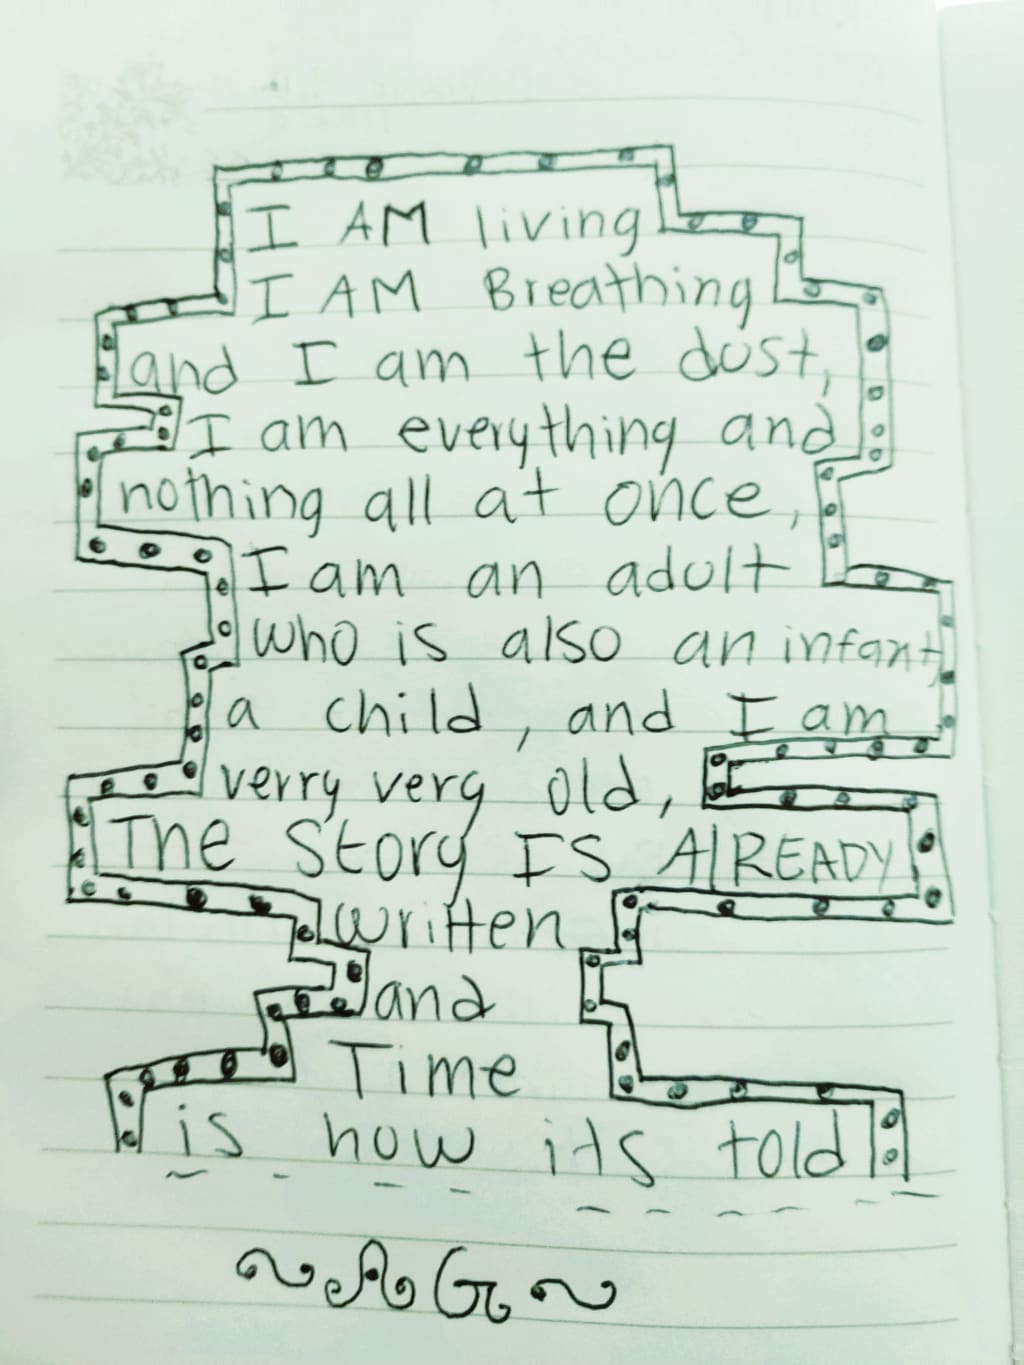 I AM living
I AM Breathing
and I am the dust,
I am everything and
nothing all at once,
I am an adult
who is also an infant,
a child, and I am
verry very old,
The Story IS AlREADY
written
and
Time
is how its told
~AG~